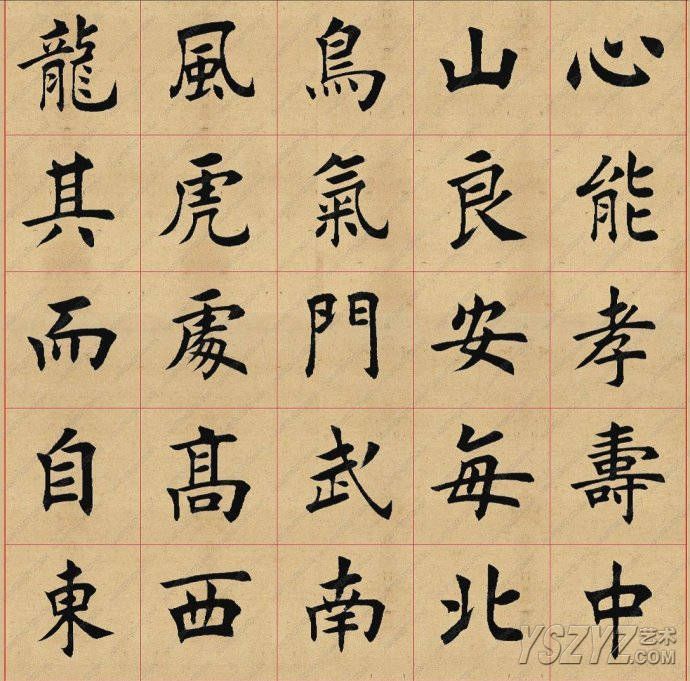 龍風鳥山心
其虎氣良能
而處門安孝
自髙武每壽
東西南北中
YSZYZ艺术.COM